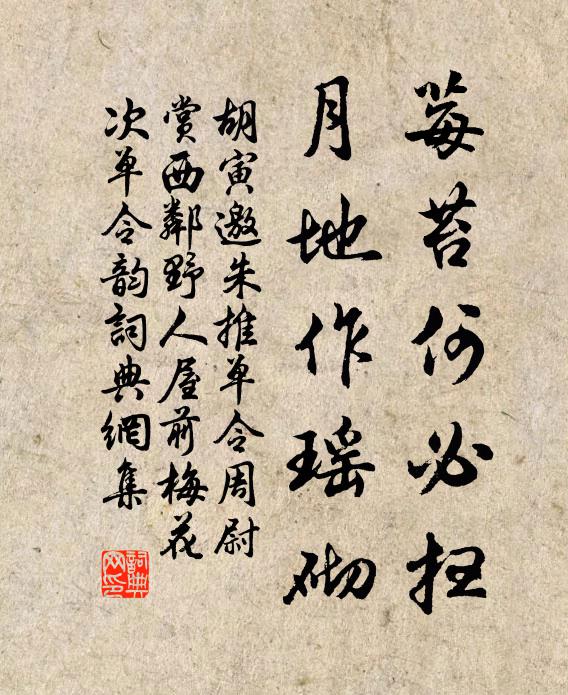 莓苔何必扫
月地作瑶砌
胡寅邀朱推单令周尉
赏西鄰野人屋前梅花
次单令韵詞典網集
詞典網印